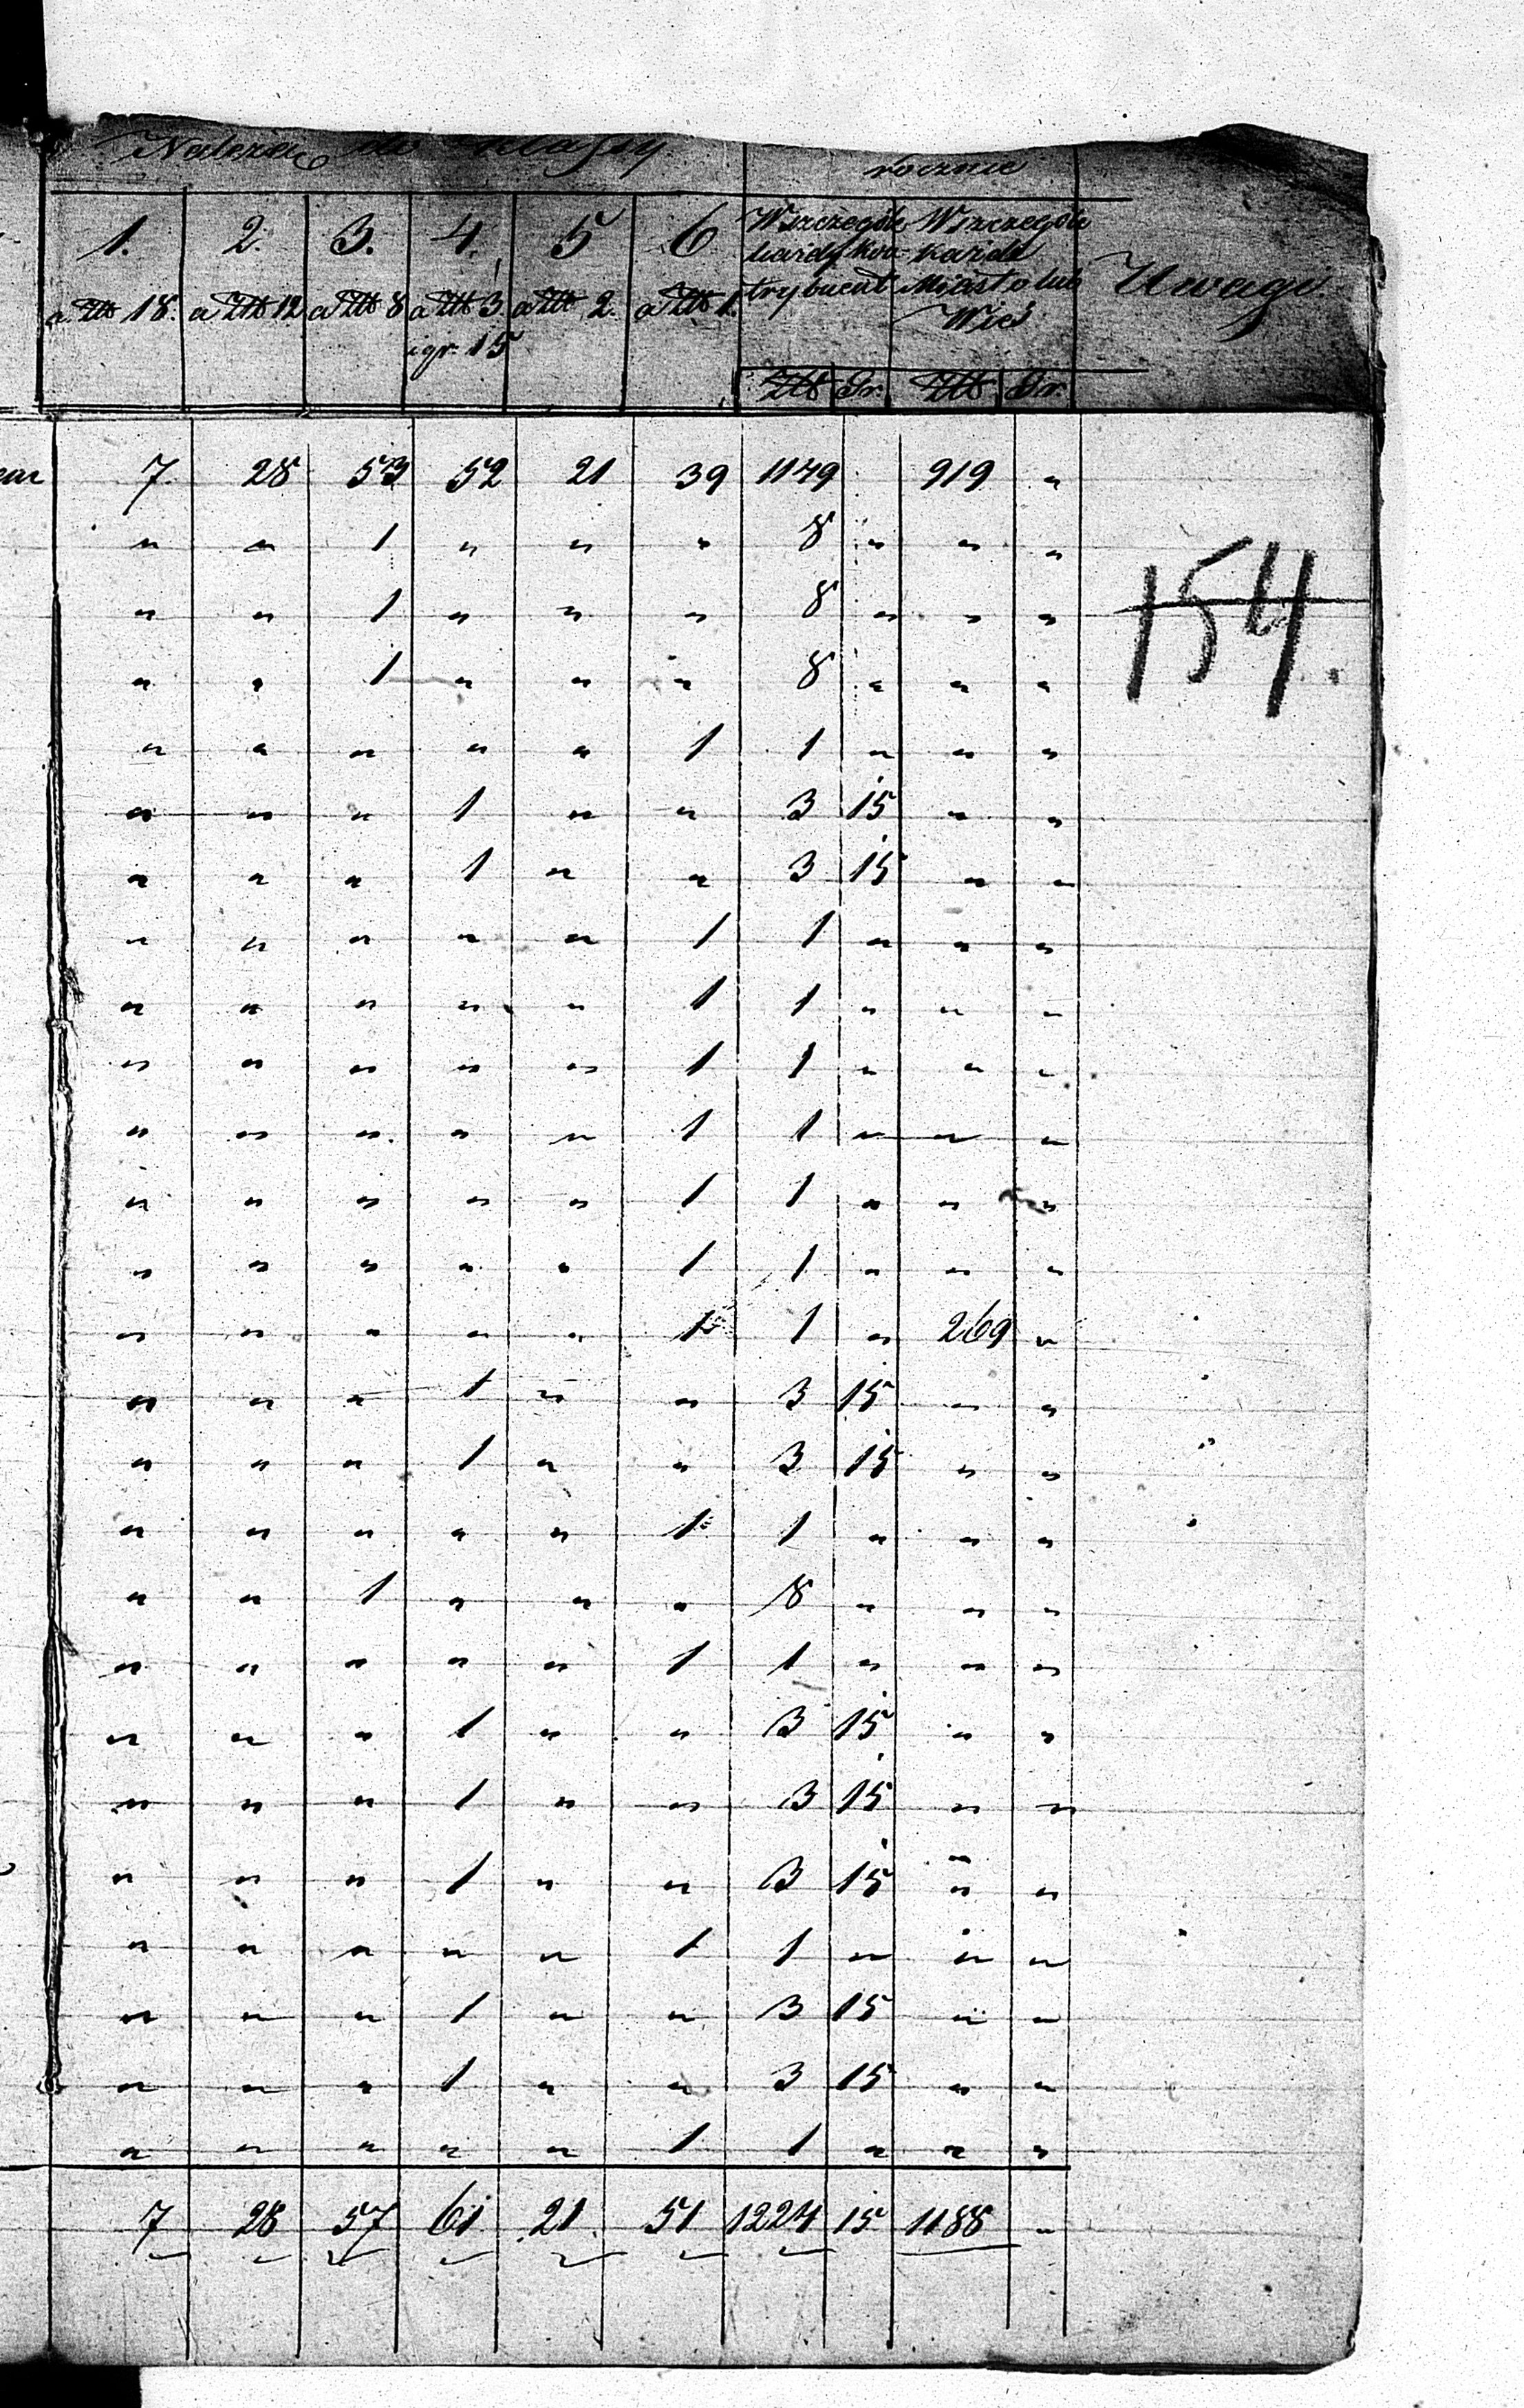 Należą do klassy rocznie
1. 2. 3. 4. 5 6 Wszczegole Wszczegole Uwagi.
każdy kon- każde
trybuent Miasto lub
a Złt 18. a Złt 12 a Złt 8 a Złt 3. a Złt 2. a Złt 1. Wieś
i gr. 15
Złt Gr. Złt Gr.
7. 28 53 52 21 39 1149 919 "
" " 1 " " " 8 " " "
154.
" " 1 " " " 8 " " "
" " 1 " " " 8 " " "
" " " " " 1 1 " " "
" " " 1 " " 3 15 " "
" " " 1 " " 3 15 " "
" " " " " 1 1 " " "
" " " " " 1 1 " " "
" " " " " 1 1 " " "
" " " " " 1 1 " " "
" " " " " 1 1 " " "
" " " " " 1 1 " " "
" " " " " 1 1 " 269 "
" " " 1 " " 3 15 " "
" " " 1 " " 3 15 " "
" " " " " 1 1 " " "
" " 1 " " " 8 " " "
" " " " " 1 1 " " "
" " " 1 " " 3 15 " "
" " " 1 " " 3 15 " "
" " " 1 " " 3 15 " "
" " " " " 1 1 " " "
" " " 1 " " 3 15 " "
" " " 1 " " 3 15 " "
" " " " " 1 1 " " "
7 28 57 61 21 51 1224 15 1188 "